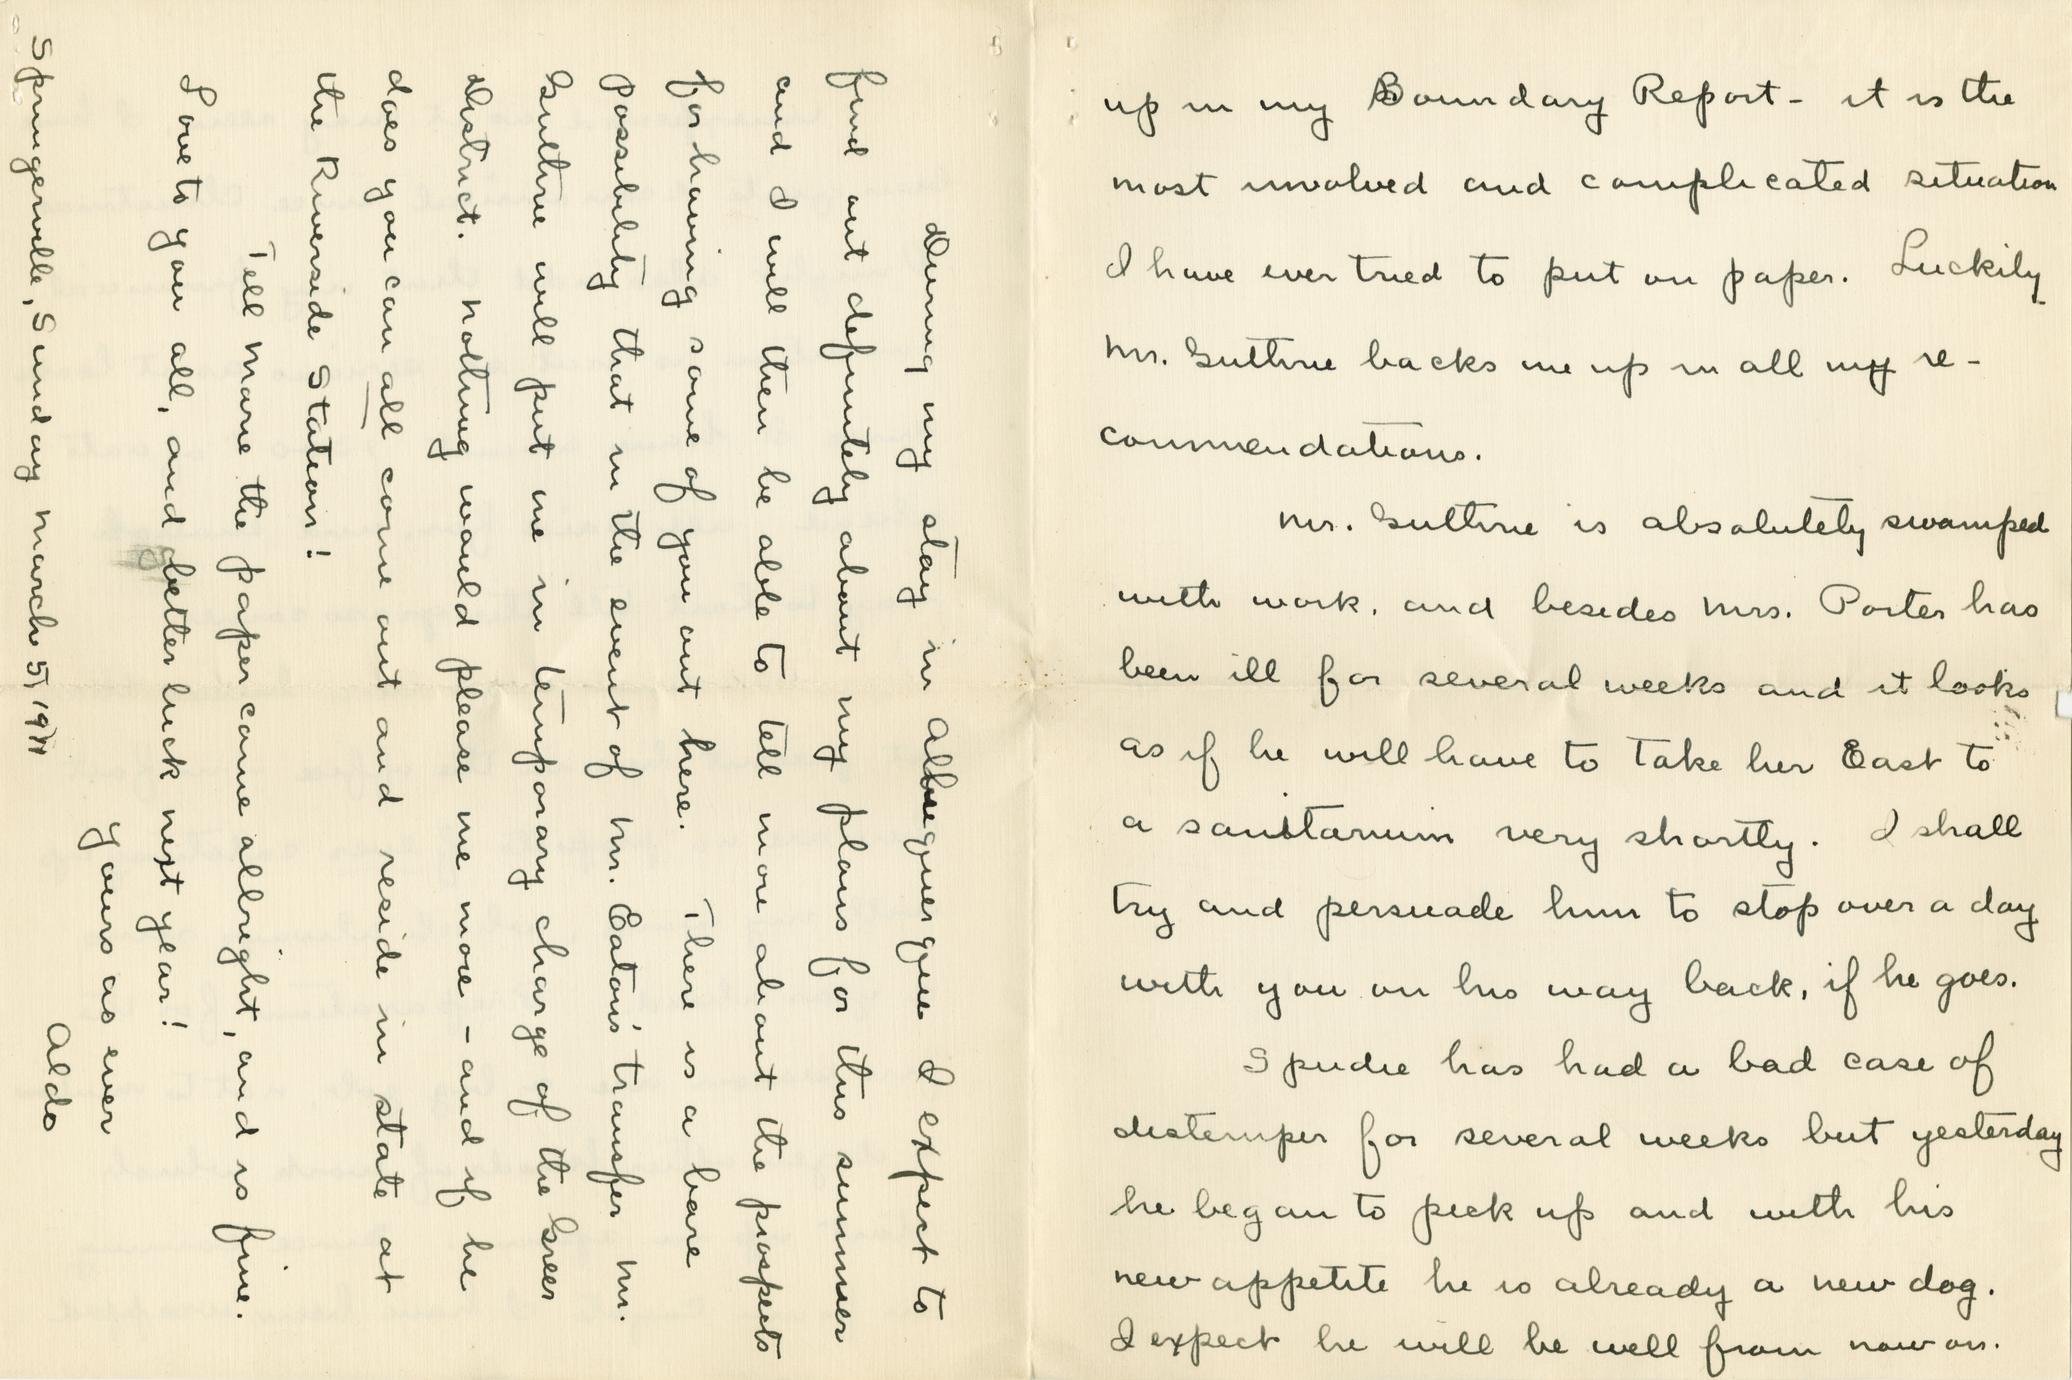 up in my Boundary Report - it is the
most involved and complicated situation
I have ever tried to put on paper. Luckily
Mr. Guthrie backs me up in all my re-
commendations.
Mr. Guthrie is absolutely swamped
with work, and besides Mrs. Porter has
been ill for several weeks and it looks
as if he will have to take her East to
a sanitarium very shortly. I shall
try and persuade him to stop over a day
with you on his way back, if he goes.
Spudie has had a bad case of
distemper for several weeks but yesterday
he began to pick up and with his
new appetite he is already a new dog.
I expect he will be well from now on.
During my stay in Albuquerque I expect to
find out definitely about my plans for this summer
and I will then be able to tell more about the prospects
for having some of you out here. There is a bare
possibility that in the event of Mr. Eaton's transfer Mr.
Guthrie will put me in temporary charge of the Greer
District. Nothing would please me more - and if he
does you can all come out and reside in state at
the Riverside Station!
Tell Marie the paper came allright, and is fine.
Love to you all, and better luck next year!
Yours as ever
Aldo
Springerville, Sunday March 5, 1911